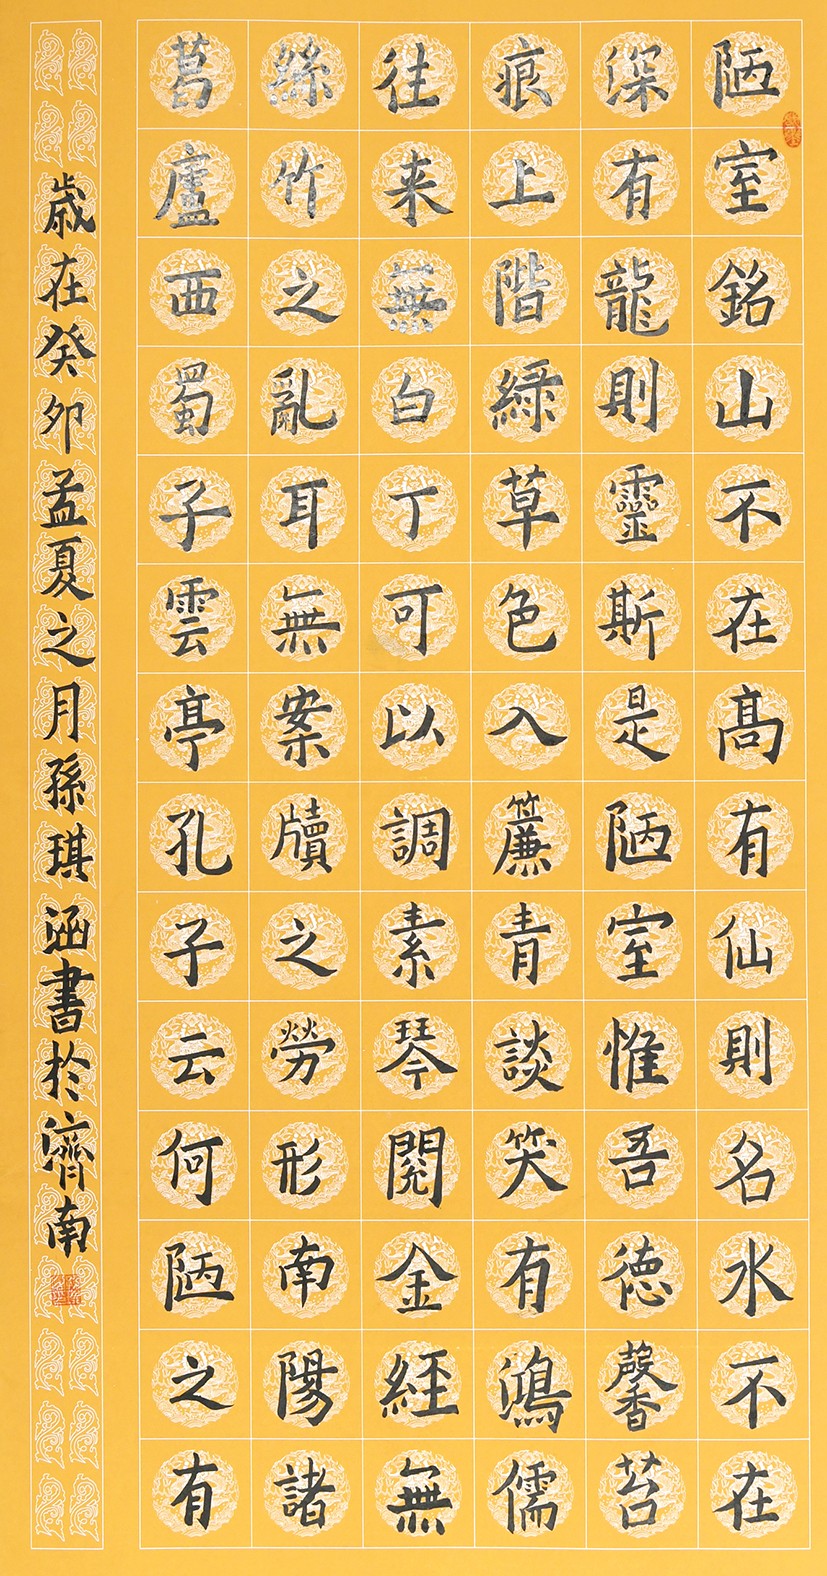 陋室銘山不在髙有仙則名水不在
深有龍則靈斯是陋室惟吾德馨苔
痕上階緑草色入簾青談笑有鴻儒
往来無白丁可以調素琴閱金經無
絲竹之亂耳無案牘之勞形南陽諸
葛廬西蜀子雲亭孔子云何陋之有
歲在癸卯孟夏之月孫琪涵書於濟南